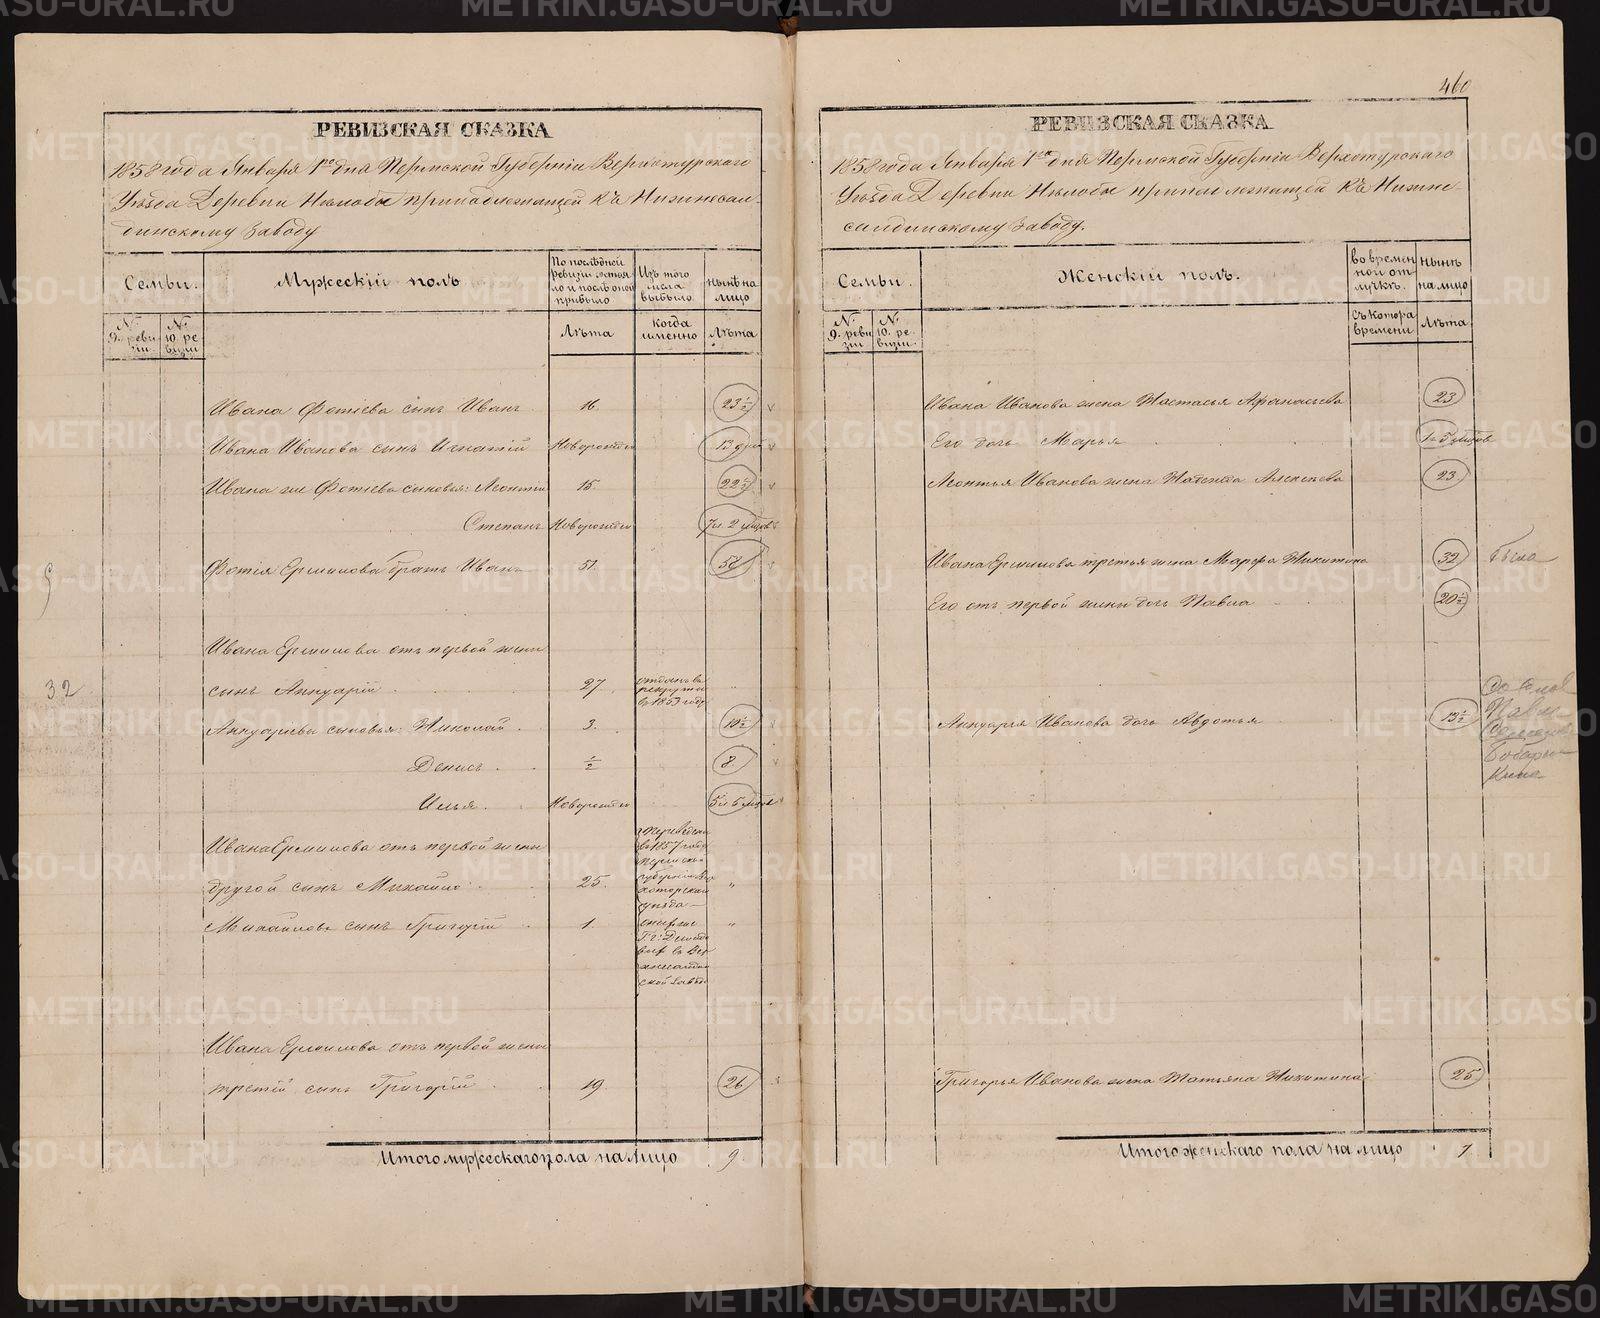 460
РЕВИЗСКАЯ СКАЗКА
1858 года Января 1го дня Пермской Губерніи Верхотурскаго
Уѣзда Деревни Нѣлобы принадлежащей къ Нижнесал-
динскому Заводу
Семьи.
Мужескій полъ
По послѣдней ревизіи состояло и послѣ оной прибыло
Изъ того числа выбыло
Нынѣ на лицо
№ 9. ревизіи
№ 10. ревизіи
Лѣта
когда именно
Лѣта
Ивана Фотіева сынъ Иванъ 16. 23½
Ивана Иванова сынъ Игнатій Новорожден 13 дней
Ивана же Фотіева сыновья: Леонтій 15. 22½
Степанъ Новорожден 7 л. 2 мѣсов
Фотія Ермилова братъ Иванъ 51. 58
Ивана Ермилова отъ первой жены
сынъ Аннуарій 27. отданъ въ рекруты въ 1853 году „
32
Аннуаріева сыновья: Николай 3. 10½
Денисъ ½ 8.
Илья Новорожден 5 л 5 мѣсов
Ивана Ермилова отъ первой жены
другой сынъ Михайло 25. „
Михайлова сынъ Григорій 1. „
переведены въ 1857 году Пермской губерніи
уѣзда
Ивана Ермилова отъ первой жены
третій сынъ Григорій 19. 26
Итого мужескаго пола на лицо 9.
РЕВИЗСКАЯ СКАЗКА
1858 года Января 1го дня Пермской Губерніи Верхотурскаго
Уѣзда Деревни Нѣлобы принадлежащей къ Нижне-
салдинскому Заводу.
Семьи.
Женскій полъ.
во временной отлучкѣ.
Нынѣ на лицо
№ 9. ревизіи
№ 10. ревизіи.
Съ котора времени
Лѣта.
Ивана Иванова жена Настасья Афанасьева 23
Его дочь Марья 1 г 5 мѣсов
Леонтья Иванова жена Надежда Алексѣева 23.
Ивана Ермилова третья жена Марфа Никитина 32
Его отъ первой жены дочь Павла 20½
Аннуарія Иванова дочь Авдотья 13½
Григорья Иванова жена Татьяна Никитина 25
Итого женскаго пола на лицо 7.
METRIKI.GASO-URAL.RU